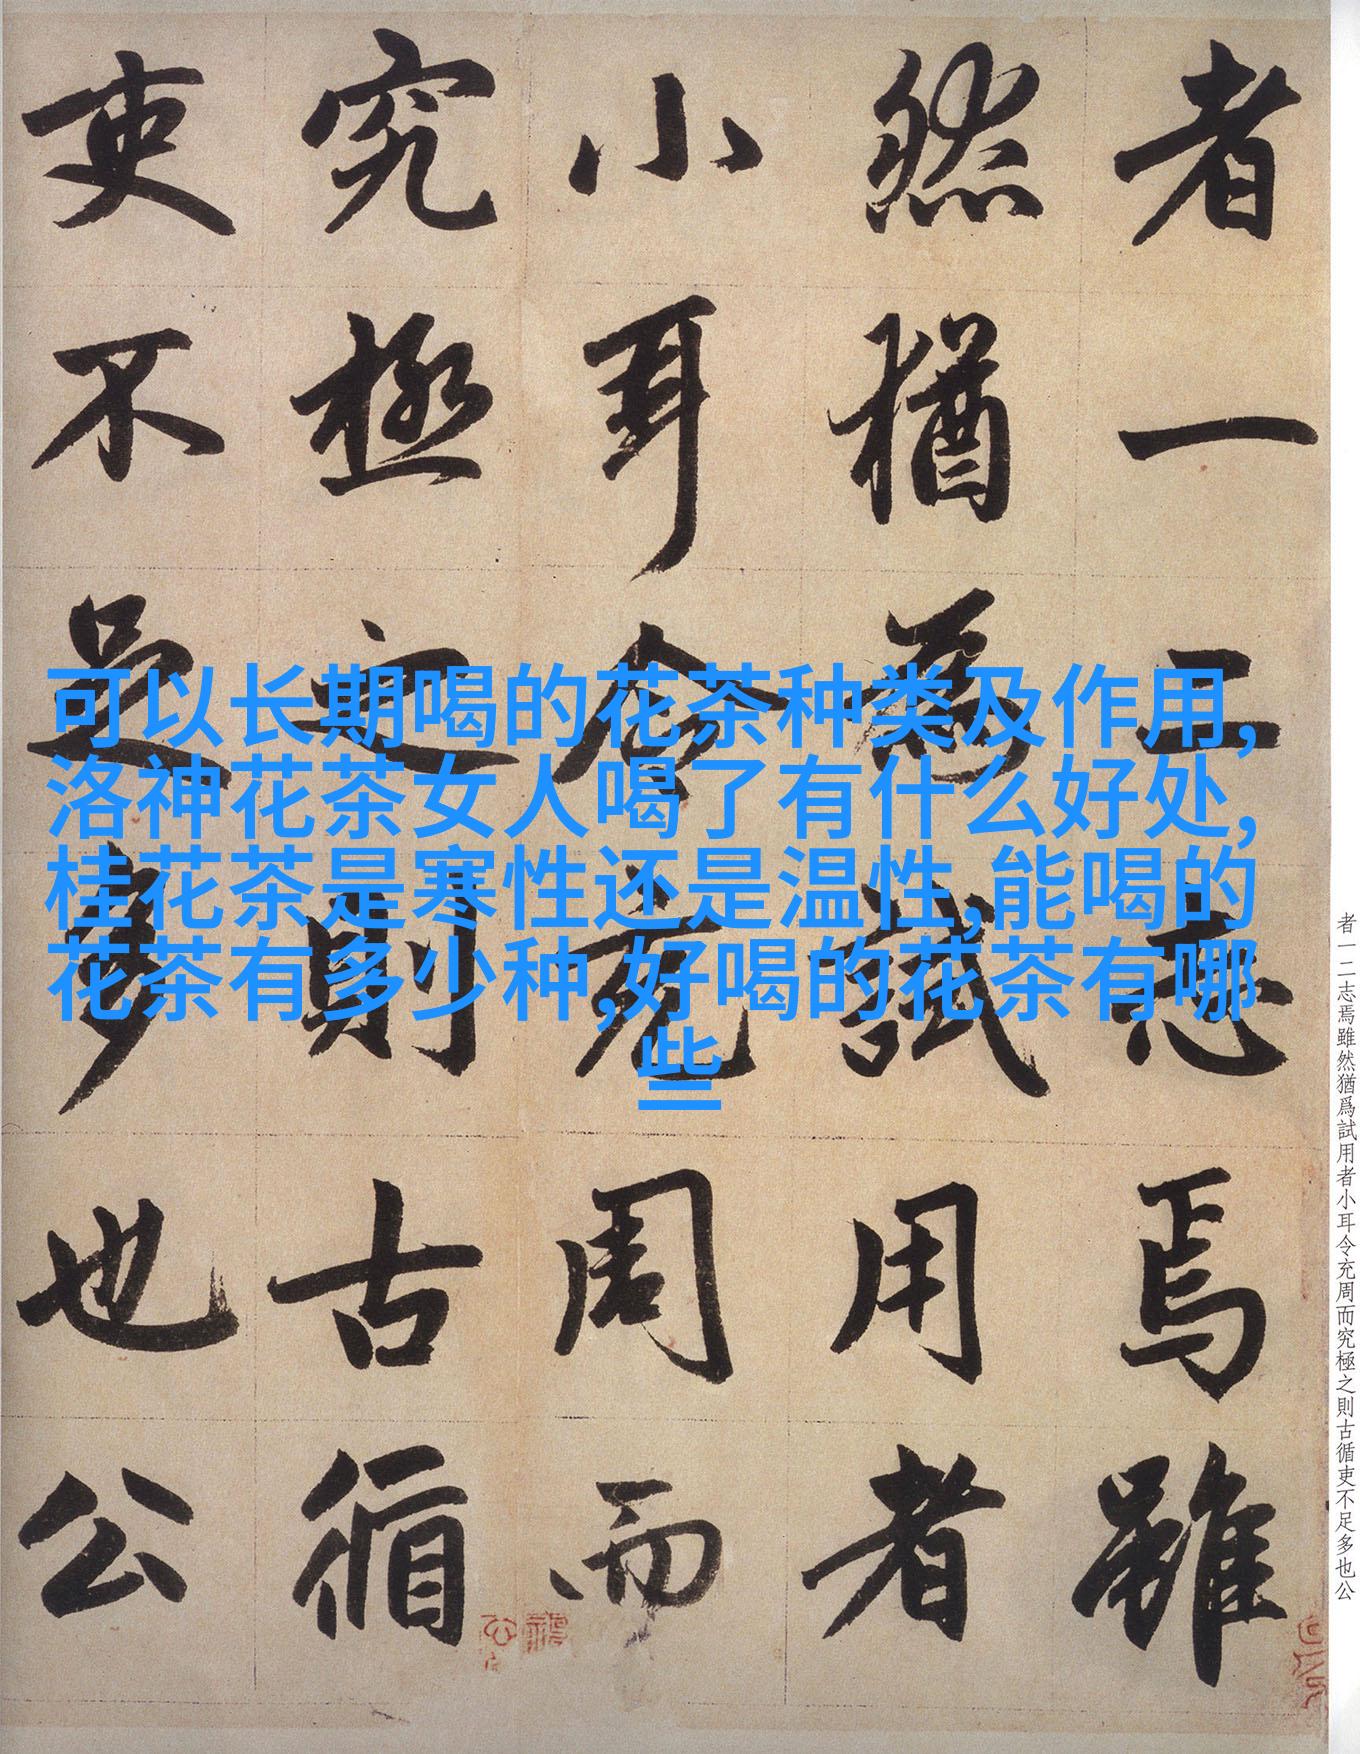 者一二志焉雖
然猶為試用者
小耳令充周而
究極之則古循
吏不足多也公
可以长期喝的花茶种类及作用,
洛神花茶女人喝了有什么好处,
桂花茶是寒性还是温性,能喝的
花茶有多少种,好喝的花茶有哪
些
者一二志焉雖然猶爲試用者小耳令充周而究極之則古循吏不足多也公